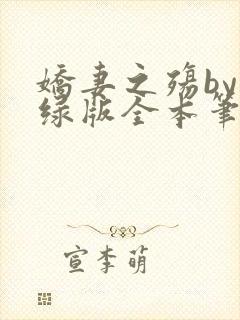 娇妻之殇by
绿版全本笔
宣李萌